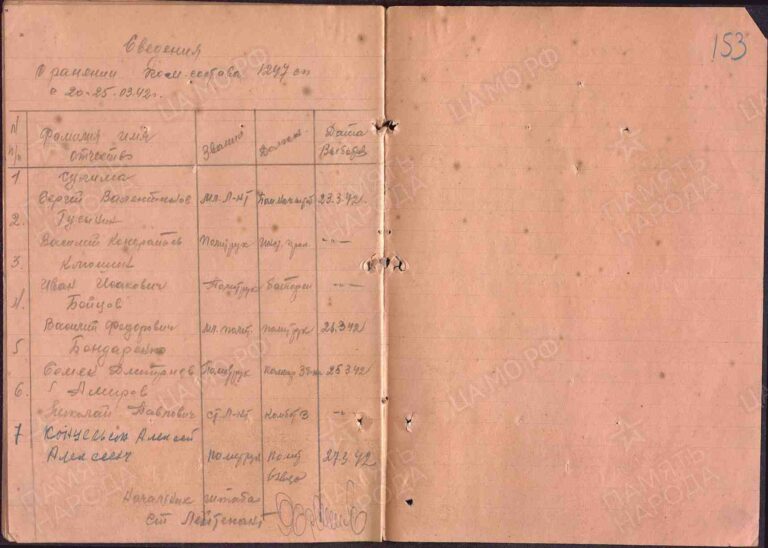 153
Сведения
О ранении Ком. состава 1247 сп
с 20-25.03.42г.
N п/п Фамилия имя отчество Звание Должн. Дата Выбытия
1 Сугима
Сергей Валентинов мл. Л-нт Пом.Нач. 23.3.42г.
2. Гусыкин
Василий Кондратьев Политрук -"-
3. Клюшин
Иван Исакович Политрук батареи -"-
4. Бойцов
Василий Федорович мл. полит. политрук 26.3.42
5 Бондаренко
Семен Дмитриев Политрук 25.3.42
6. Амиров
Николай Павлович ст. Л-нт Комбат 3 -"-
7 Алексей
Алексеевич политрук полит 27.3.42
взвода
Начальник штаба
Ст Лейтенант
ЦАМО.РФ
ПАМЯТЬ НАРОДА